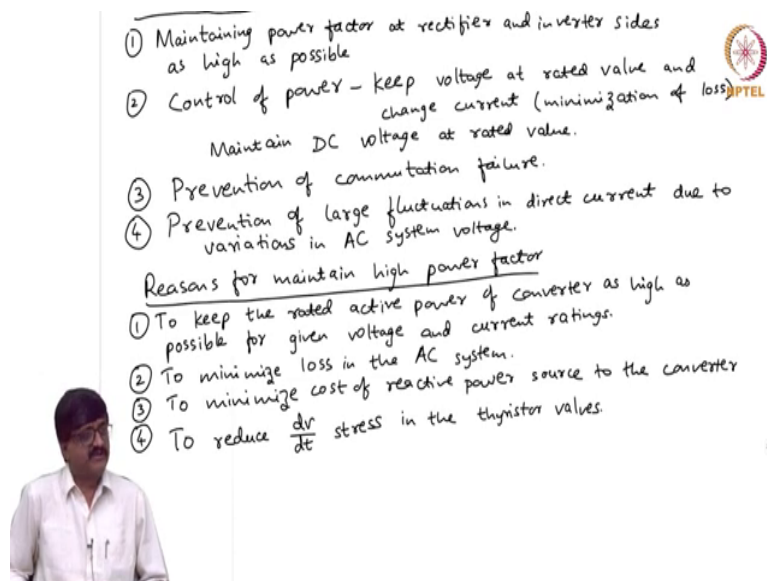 ① Maintaining power factor at rectifier and inverter sides
as high as possible
② Control of power - keep voltage at rated value and
change current (minimization of loss)
Maintain DC voltage at rated value.
③ Prevention of commutation failure.
④ Prevention of large fluctuations in direct current due to
variations in AC system voltage.
Reasons for maintain high power factor
① To keep the rated active power of converter as high as
possible for given voltage and current ratings.
② To minimize loss in the AC system.
③ To minimize cost of reactive power source to the converter
④ To reduce dv/dt stress in the thyristor valves.
NPTEL